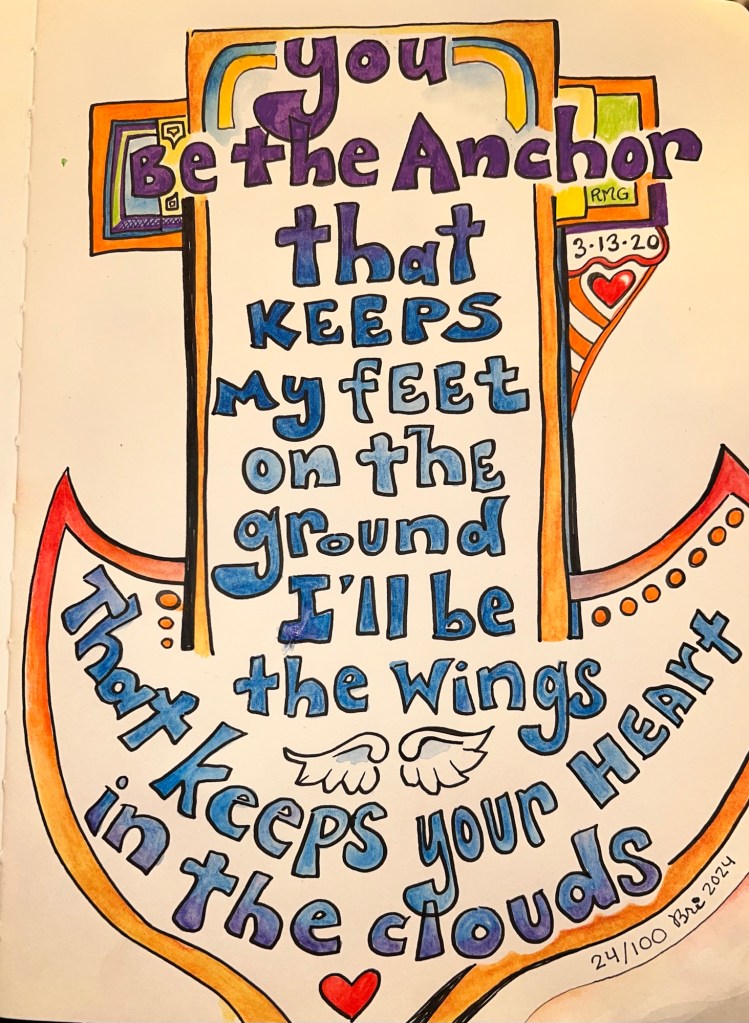 you
Be the Anchor
RMG
3-13-20
that
KEEPS
My fEEt
on thE
ground
I'll be
the wings
That keeps your HEArt
in the clouds
24/100 Bri 2024